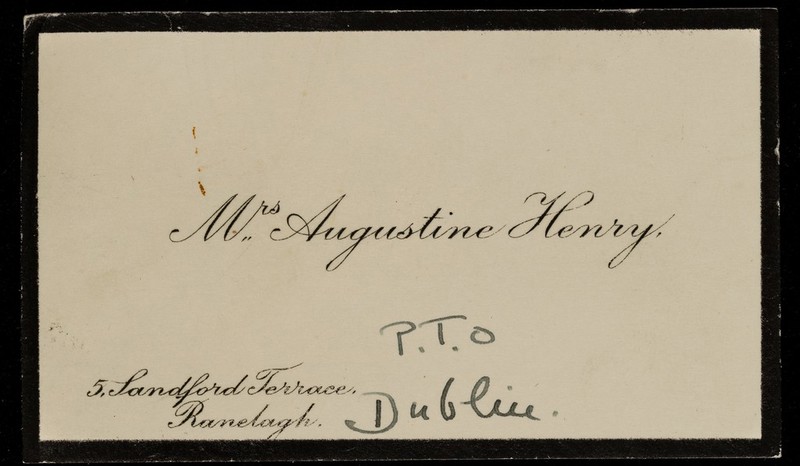 Mrs Augustine Henry.
P.T.O
5, Sandford Terrace.
Ranelagh.
Dublin.